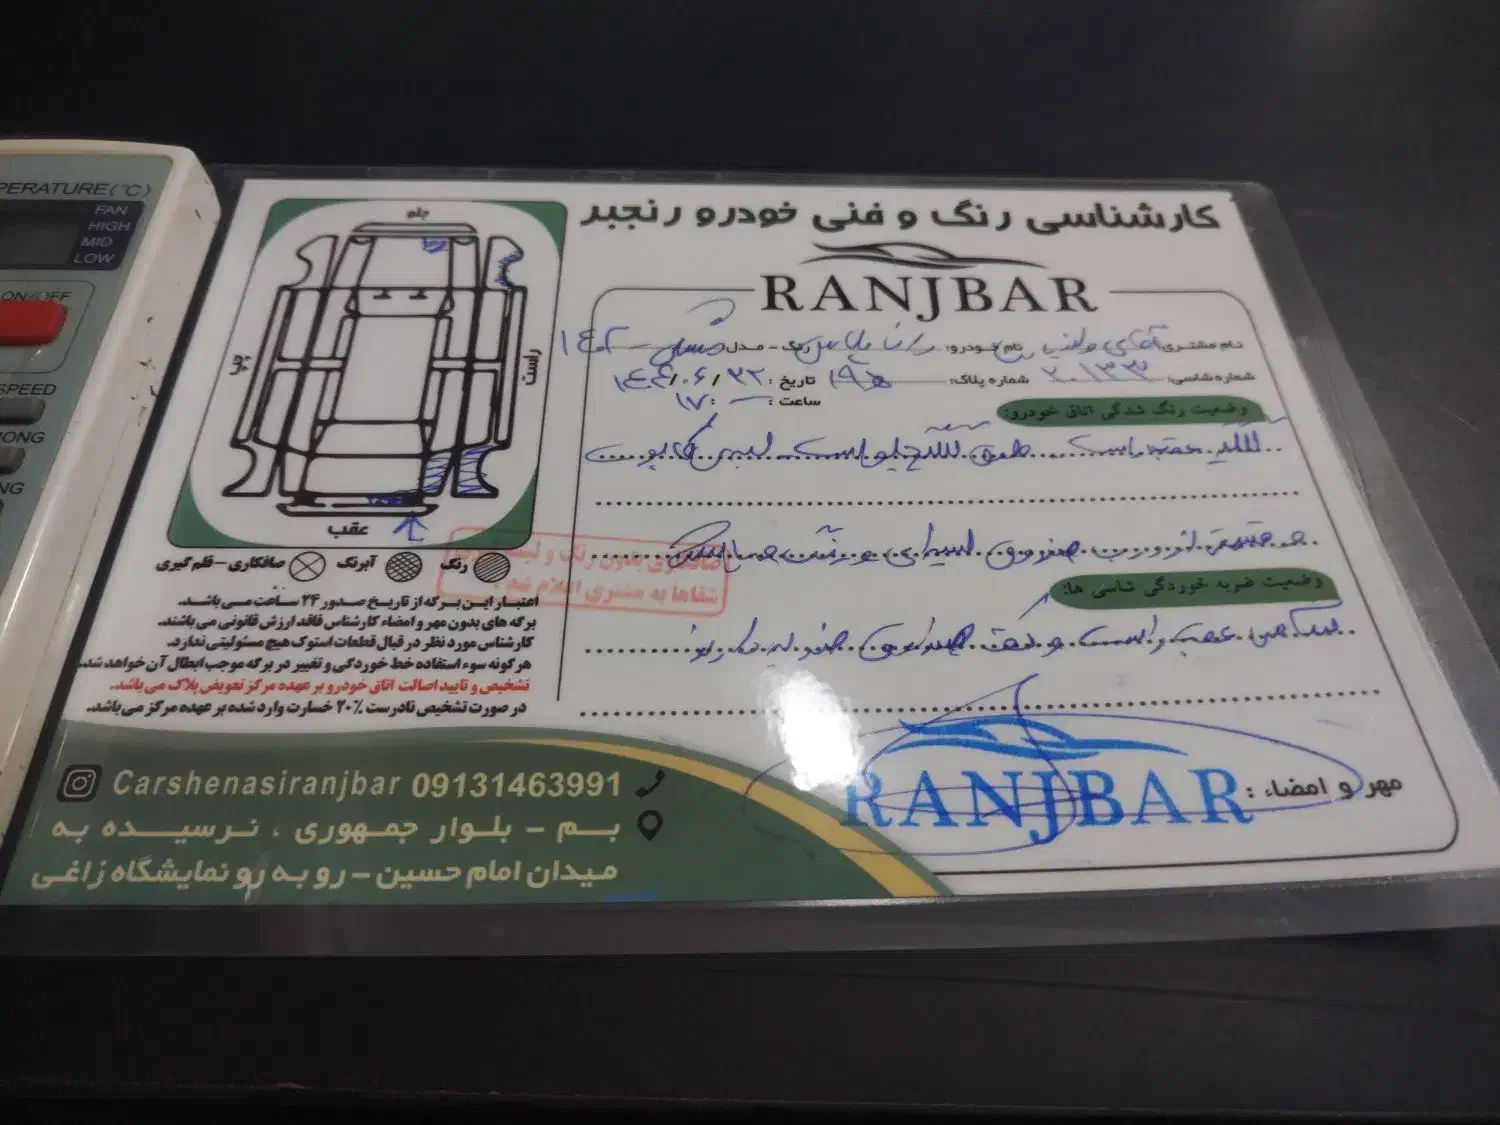 PERATURE(°C)
FAN
HIGH
MID
LOW
ON/OFF
SPEED
ONG
NG
کارشناسی رنگ و فنی خودرو رنجبر
RANJBAR
نام مشتری: آقای نام خودرو: رانا پلاس رنگ - مدل: مشکی - ۱۴۰۲
شماره شاسی: ۲۰۱۳۳ شماره پلاک: تاریخ: ۱۴۰۴/۰۶/۲۲
ساعت: ۱۷
وضعیت رنگ شدگی اتاق خودرو:
گلگیر عقب راست گلگیر جلو راست لبه کاپوت
وضعیت ضربه خوردگی شاسی ها:
عقب راست و کف صندوق
مهر و امضاء:
RANJBAR
جلو
چپ
راست
عقب
رنگ
آبرنگ
صافکاری - قلم گیری
صافکاری بدون رنگ و
شفاها به مشتری اعلام شد
اعتبار این برگه از تاریخ صدور ۲۴ ساعت می باشد.
برگه های بدون مهر و امضاء کارشناس فاقد ارزش قانونی می باشند.
کارشناس مورد نظر در قبال قطعات استوک هیچ مسئولیتی ندارد.
هرگونه سوء استفاده خط خوردگی و تغییر در برگه موجب ابطال آن خواهد شد.
تشخیص و تایید اصالت اتاق خودرو بر عهده مرکز تعویض پلاک می باشد.
در صورت تشخیص نادرست ۲۰٪ خسارت وارد شده بر عهده مرکز می باشد.
Carshenasiranjbar 09131463991
بم - بلوار جمهوری ، نرسیده به
میدان امام حسین - رو به رو نمایشگاه زاغی